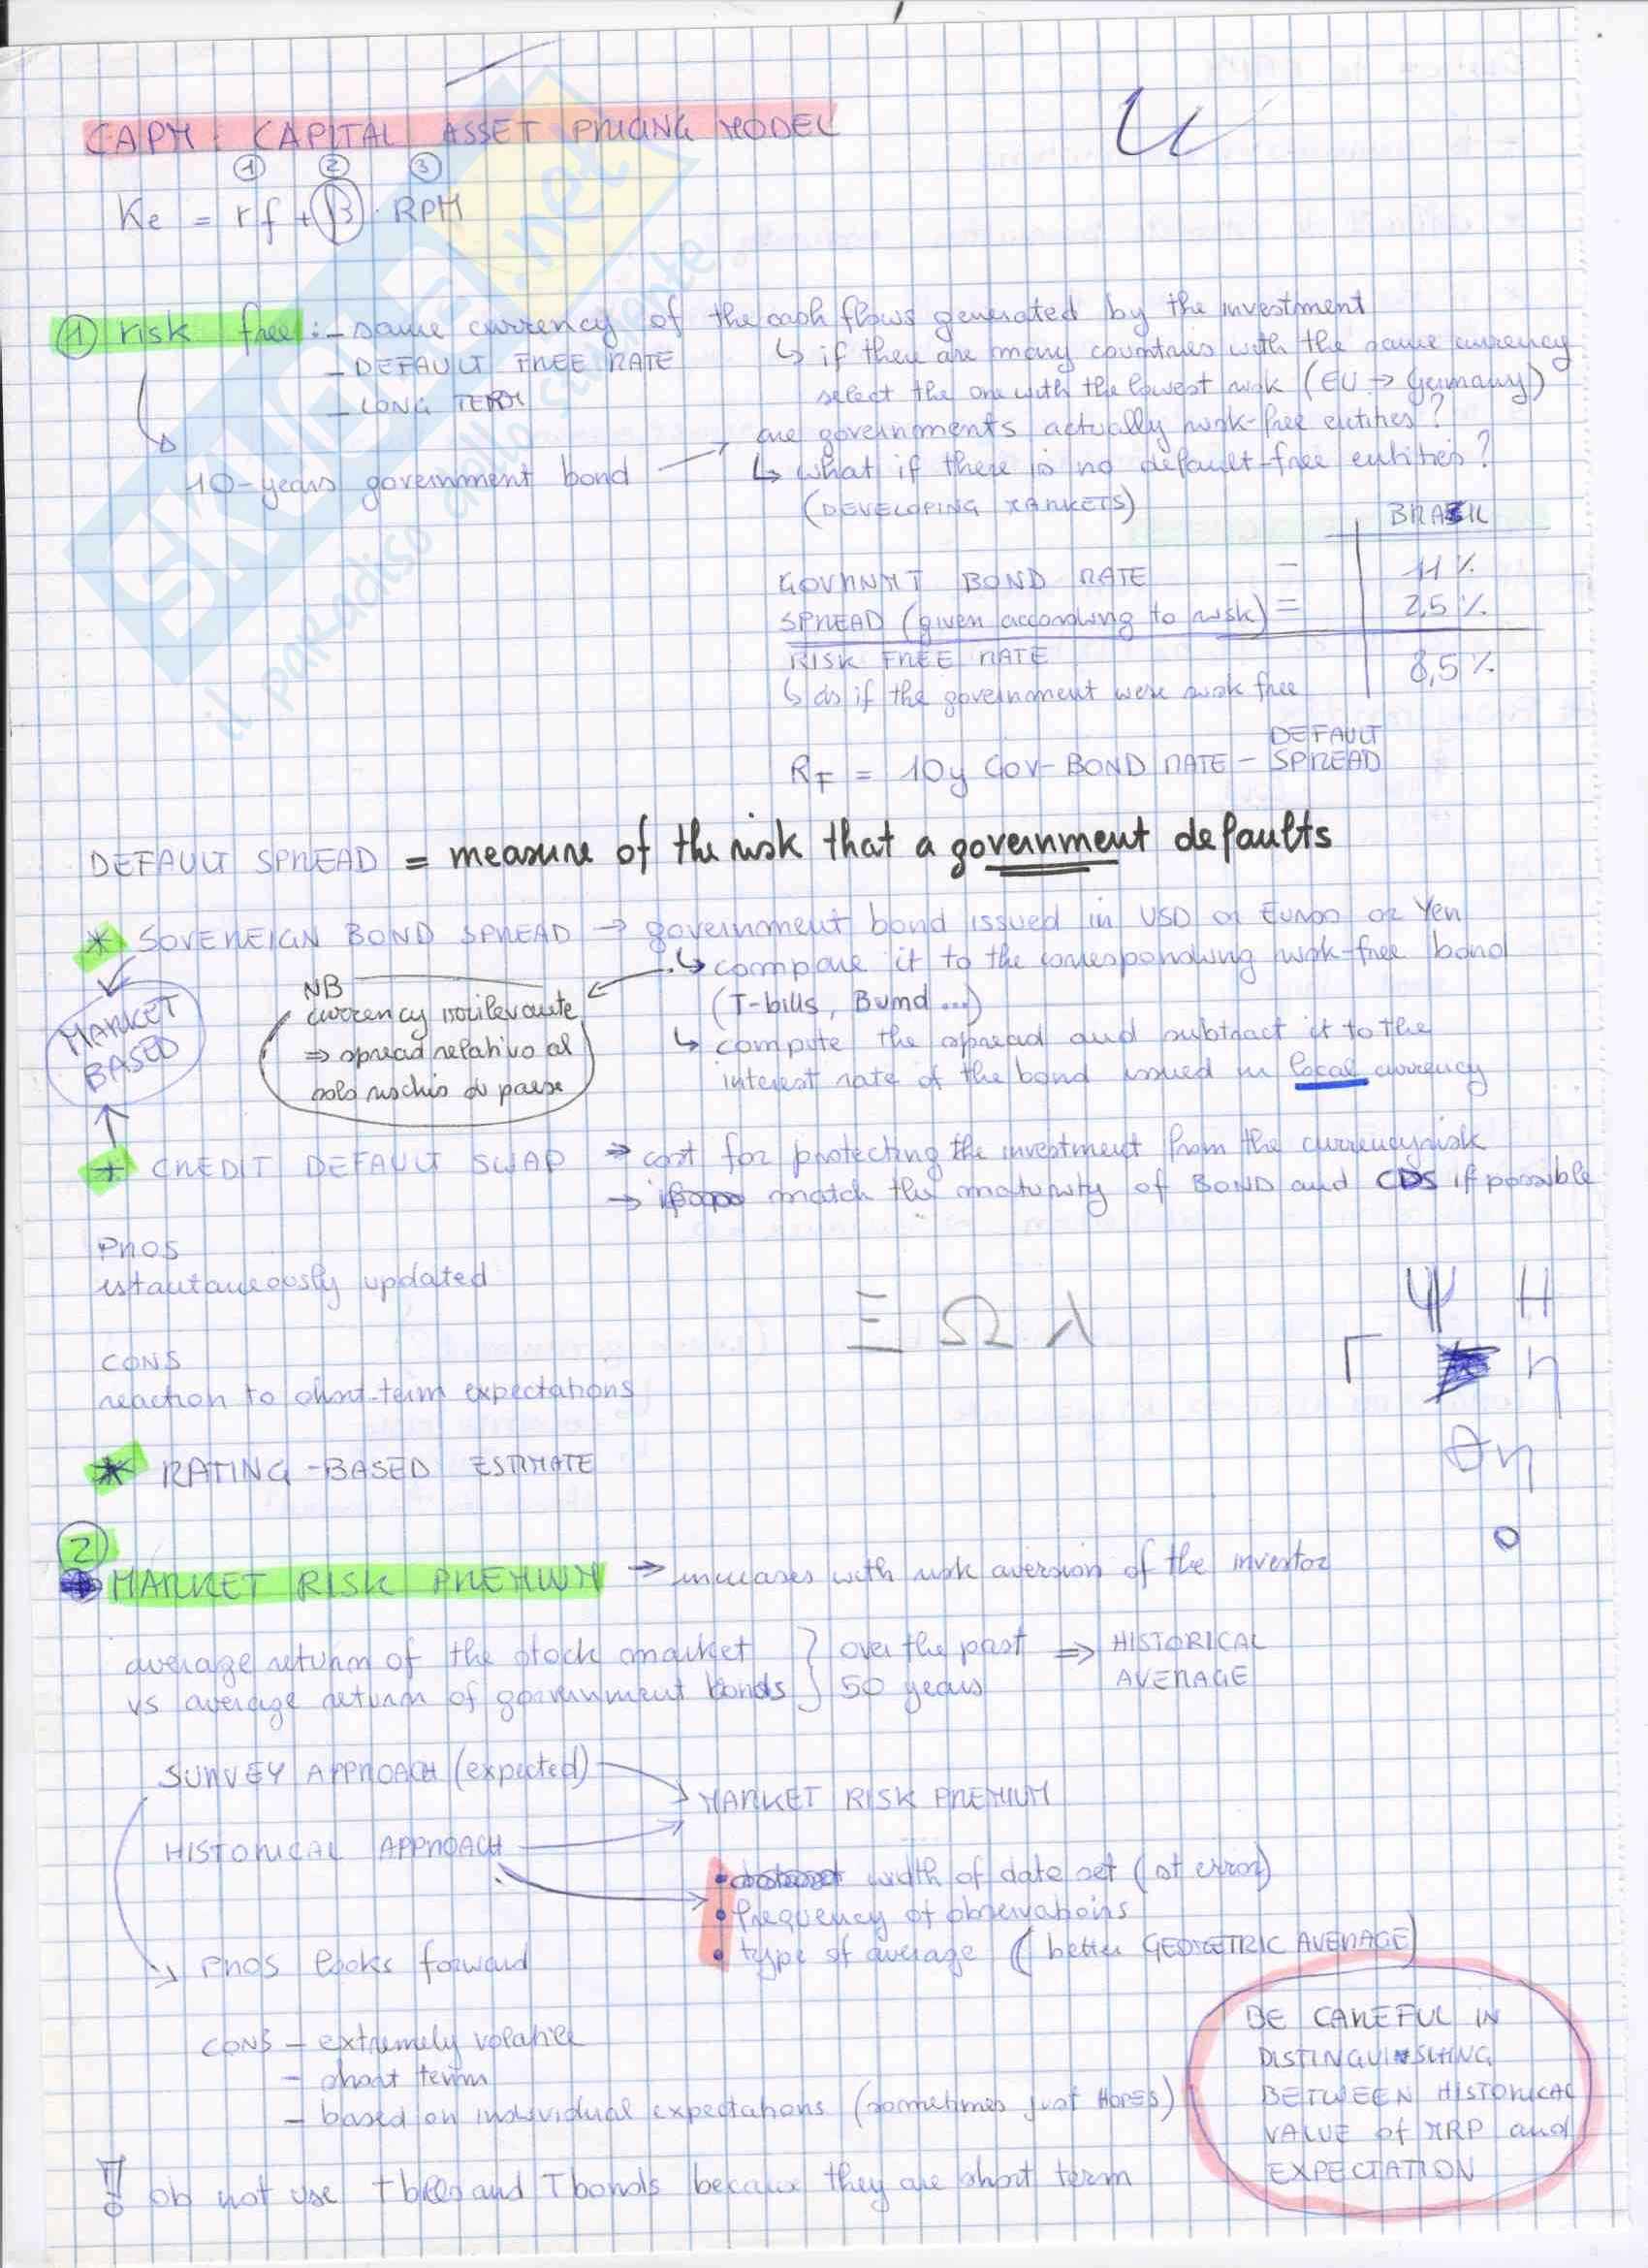 CAPM: CAPITAL ASSET PRICING MODEL
① ② ③
Ke = rf + β · RPM
① risk free: - same currency of the cash flows generated by the investment
↳ if there are many countries with the same currency
- DEFAULT FREE RATE
select the one with the lowest risk (EU → Germany)
- LONG TERM
are governments actually risk-free entities?
10-years government bond
↳ what if there is no default-free entities?
(DEVELOPING MARKETS)
BRAZIL
GOVRNMT BOND RATE - 11%
SPREAD (given according to risk) = 2,5%
RISK FREE RATE 8,5%
↳ as if the government were risk free
RF = 10y GOV-BOND RATE - DEFAULT SPREAD
DEFAULT SPREAD = measure of the risk that a government defaults
* SOVEREIGN BOND SPREAD → government bond issued in USD or EURO or Yen
↳ compare it to the corresponding risk-free bond
(T-bills, Bund ...)
↳ compute the spread and subtract it to the
interest rate of the bond issued in local currency
NB
currency irrilevante
⇒ spread relativo al
solo rischio di paese
MARKET
BASED
* CREDIT DEFAULT SWAP → cost for protecting the investment from the currency risk
→ match the maturity of BOND and CDS if possible
PROS
istantaneously updated
CONS
reaction to short-term expectations
Ξ Ω λ
Ψ H
Γ η
θη
* RATING-BASED ESTIMATE
②
MARKET RISK PREMIUM → increases with risk aversion of the investor
average return of the stock market } over the past ⇒ HISTORICAL
vs average return of government bonds } 50 years AVERAGE
SURVEY APPROACH (expected)
MARKET RISK PREMIUM
HISTORICAL APPROACH
• width of date set (st error)
• frequency of observations
• type of average (better GEOMETRIC AVERAGE)
PROS looks forward
CONS - extremely volatile
- short term
- based on individual expectations (sometimes just HOPES)
BE CAREFUL IN
DISTINGUISHING
BETWEEN HISTORICAL
VALUE of MRP and
EXPECTATION
!! do not use Tbills and Tbonds because they are short term
SKUOLA.net
il paradiso dello studente